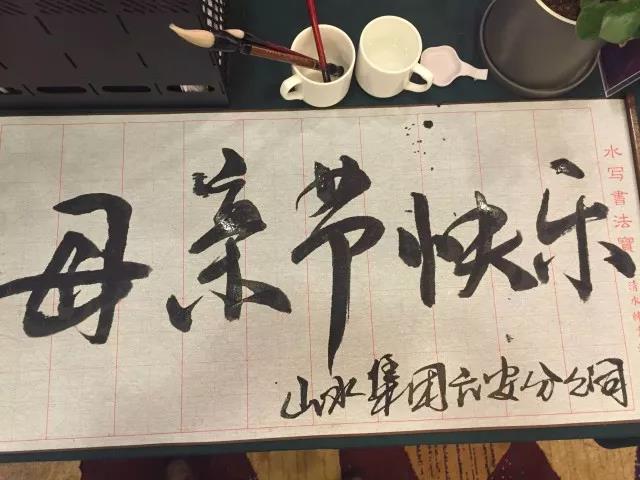 母亲节快乐
山水集团六安分公司
水写書法寶